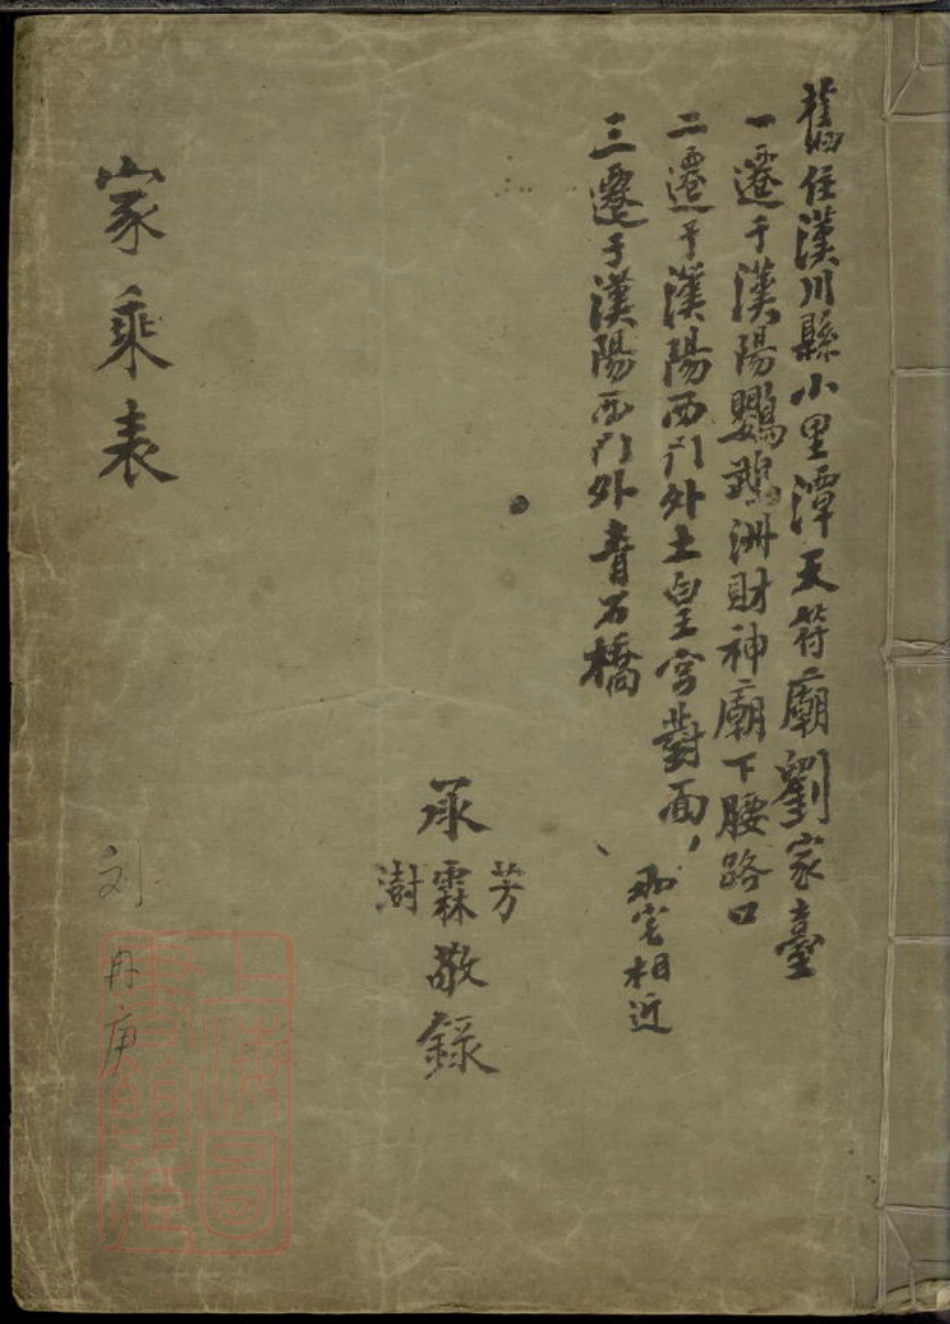 舊住漢川縣小里潭天符廟劉家臺
一遷于漢陽鸚鵡洲財神廟下腰路口
二遷于漢陽西門外土皇宮對面，
兩宅相近
三遷于漢陽西門外青石橋
芳
承霖敬錄
澍
家乘表
刘
冉庚
上海圖
書館藏